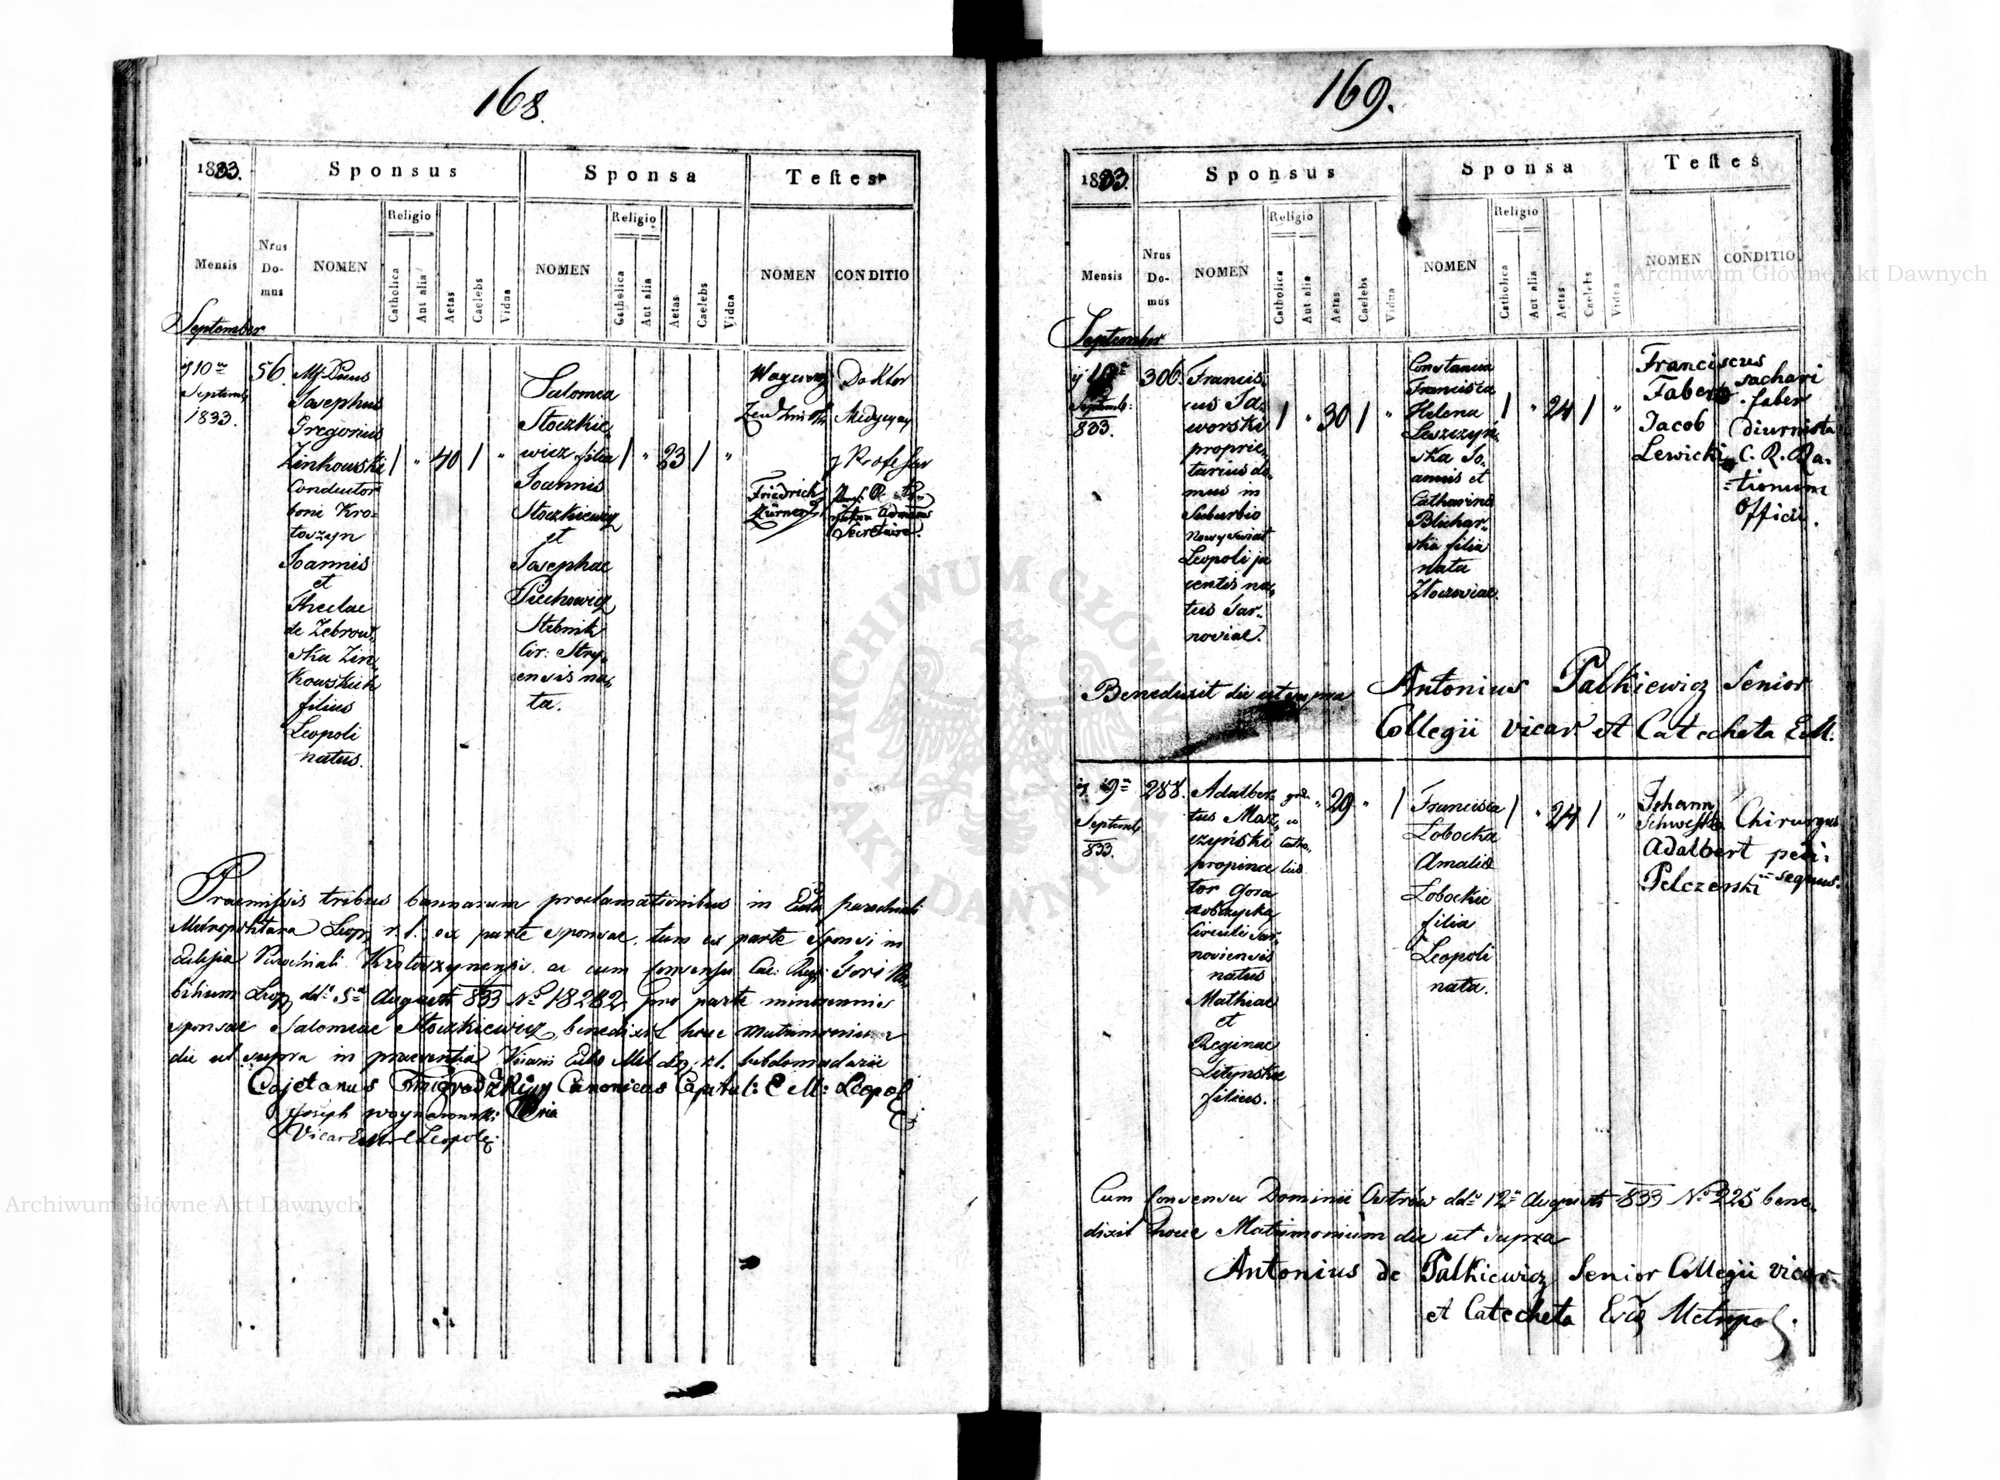 168.
1833.
Sponsus
Sponsa
Testes
Mensis
Nrus Do-mus
NOMEN
Religio
Catholica
Aut alia
Aetas
Caelebs
Vidua
NOMEN
Religio
Catholica
Aut alia
Aetas
Caelebs
Vidua
NOMEN
CONDITIO
September
10
Septemb
1833.
56.
Josephus
Gregorius
Zinkowski
Conductor
boni Kro-
toszyn
Joannis
et
Theclae
de Zebrow-
ska Zin-
kowskich
filius
Leopoli
natus.
/ " 40 / "
Salomea
Stoczkie-
wicz filia
Joannis
Stoczkiewicz
et
Josephae
Piechowicz
Stebnik
Cir: Stry-
ensis na-
ta.
/ " 23 / "
Doktor
Medycyny
y Professor
Friedrich
Secretaire.
Praemissis tribus bannorum proclamationibus in parochiali
Metropolitana Leop. r. l. ex parte sponsae, tum ex parte sponsi in
Parochiali Krotoszynensi ac cum consensu Caes. Reg. Fori No-
bilium Leop. ddo 5a Augusti 833 No 18282 pro parte minorennis
sponsae Salomeae Stoczkiewicz benedixit hoc matrimonium
die ut supra in praesentia Vicarii
Cajetanus Canonicus Capitul: E M: Leopol
Joseph Woynarowski
Vicar Leopol:
169.
1833.
Sponsus
Sponsa
Testes
Mensis
Nrus Do-mus
NOMEN
Religio
Catholica
Aut alia
Aetas
Caelebs
Vidua
NOMEN
Religio
Catholica
Aut alia
Aetas
Caelebs
Vidua
NOMEN
CONDITIO
September
Septemb:
833.
306.
Francis-
cus Ja-
worski
proprie-
tarius do-
mus in
Suburbio
Nowyswiat
Leopoli ja
centis na-
tus Tar-
noviae.
/ " 30 / "
Constancia
Francisca
Helena
Leszczyń-
ska Jo-
annis et
Catharina
Blichar-
ska filia
nata
Złoczoviae.
/ " 24 / "
Franciscus
Faber sachari
faber
Jacob diurnista
Lewicki C. R. Ra-
tionum
Officii.
Benedixit die ut supra Antonius Palkiewicz Senior
Collegii vicar et Catecheta E.M.
9
Septemb
833.
288.
Adalber-
tus Mosz-
czyński
propina
tor Gora
Circuli Tar-
noviensis
natus
Mathiae
et
Reginae
Litynskie
filius.
" 29 " /
Francisca
Łobocka
Amalia
Łobockie
filia
Leopoli
nata.
/ " 24 / "
Johann Chirurgus
Adalbert pedi-
Pelczerski sequus.
Cum Consensu Dominii Ostrów ddo 12a Augusti 833 No 225 bene-
dixit hoce Matrimonium die ut supra
Antonius de Palkiewicz Senior Collegii vicar
et Catecheta Metropol.
Archiwum Główne Akt Dawnych
Archiwum Główne Akt Dawnych
ARCHIWUM GŁÓWNE AKT DAWNYCH